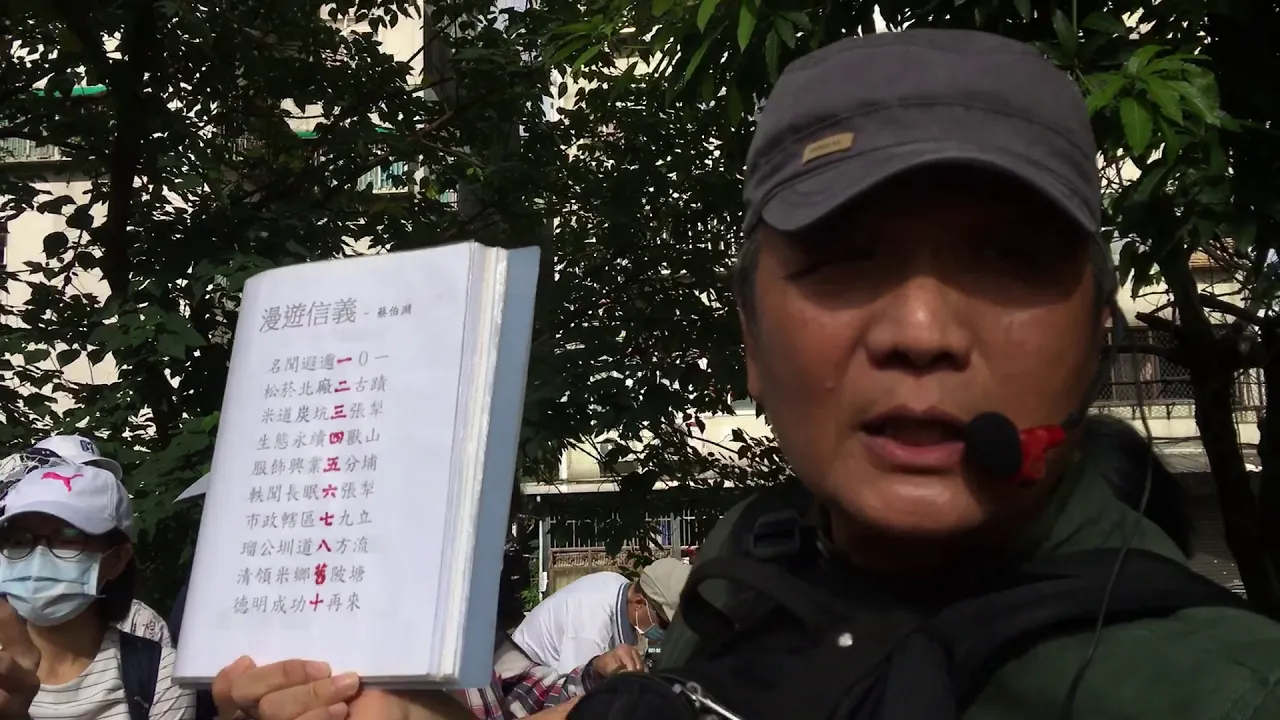 漫遊信義 ~ 蔡伯淵
名聞遐邇一０一
松菸北廠二古蹟
米道炭坑三張犁
生態永續四獸山
服飾興業五分埔
軼聞長眠六張犁
市政轄區七九立
瑠公圳道八方流
清領米鄉舊陂塘
德明成功十再來